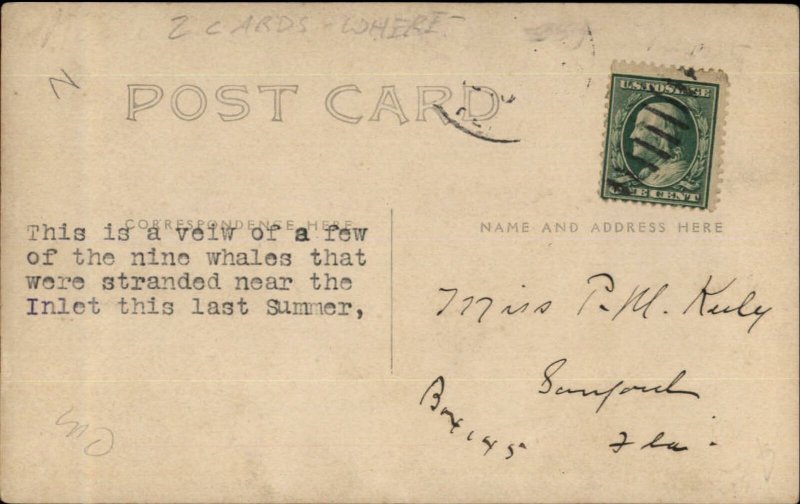 2 CARDS - WHERE
N
POST CARD
U.S. POSTAGE
ONE CENT
CORRESPONDENCE HERE
This is a veiw of a few
of the nine whales that
were stranded near the
Inlet this last Summer,
NAME AND ADDRESS HERE
Miss P. M. Keely
Sanford
Box 145
Fla.